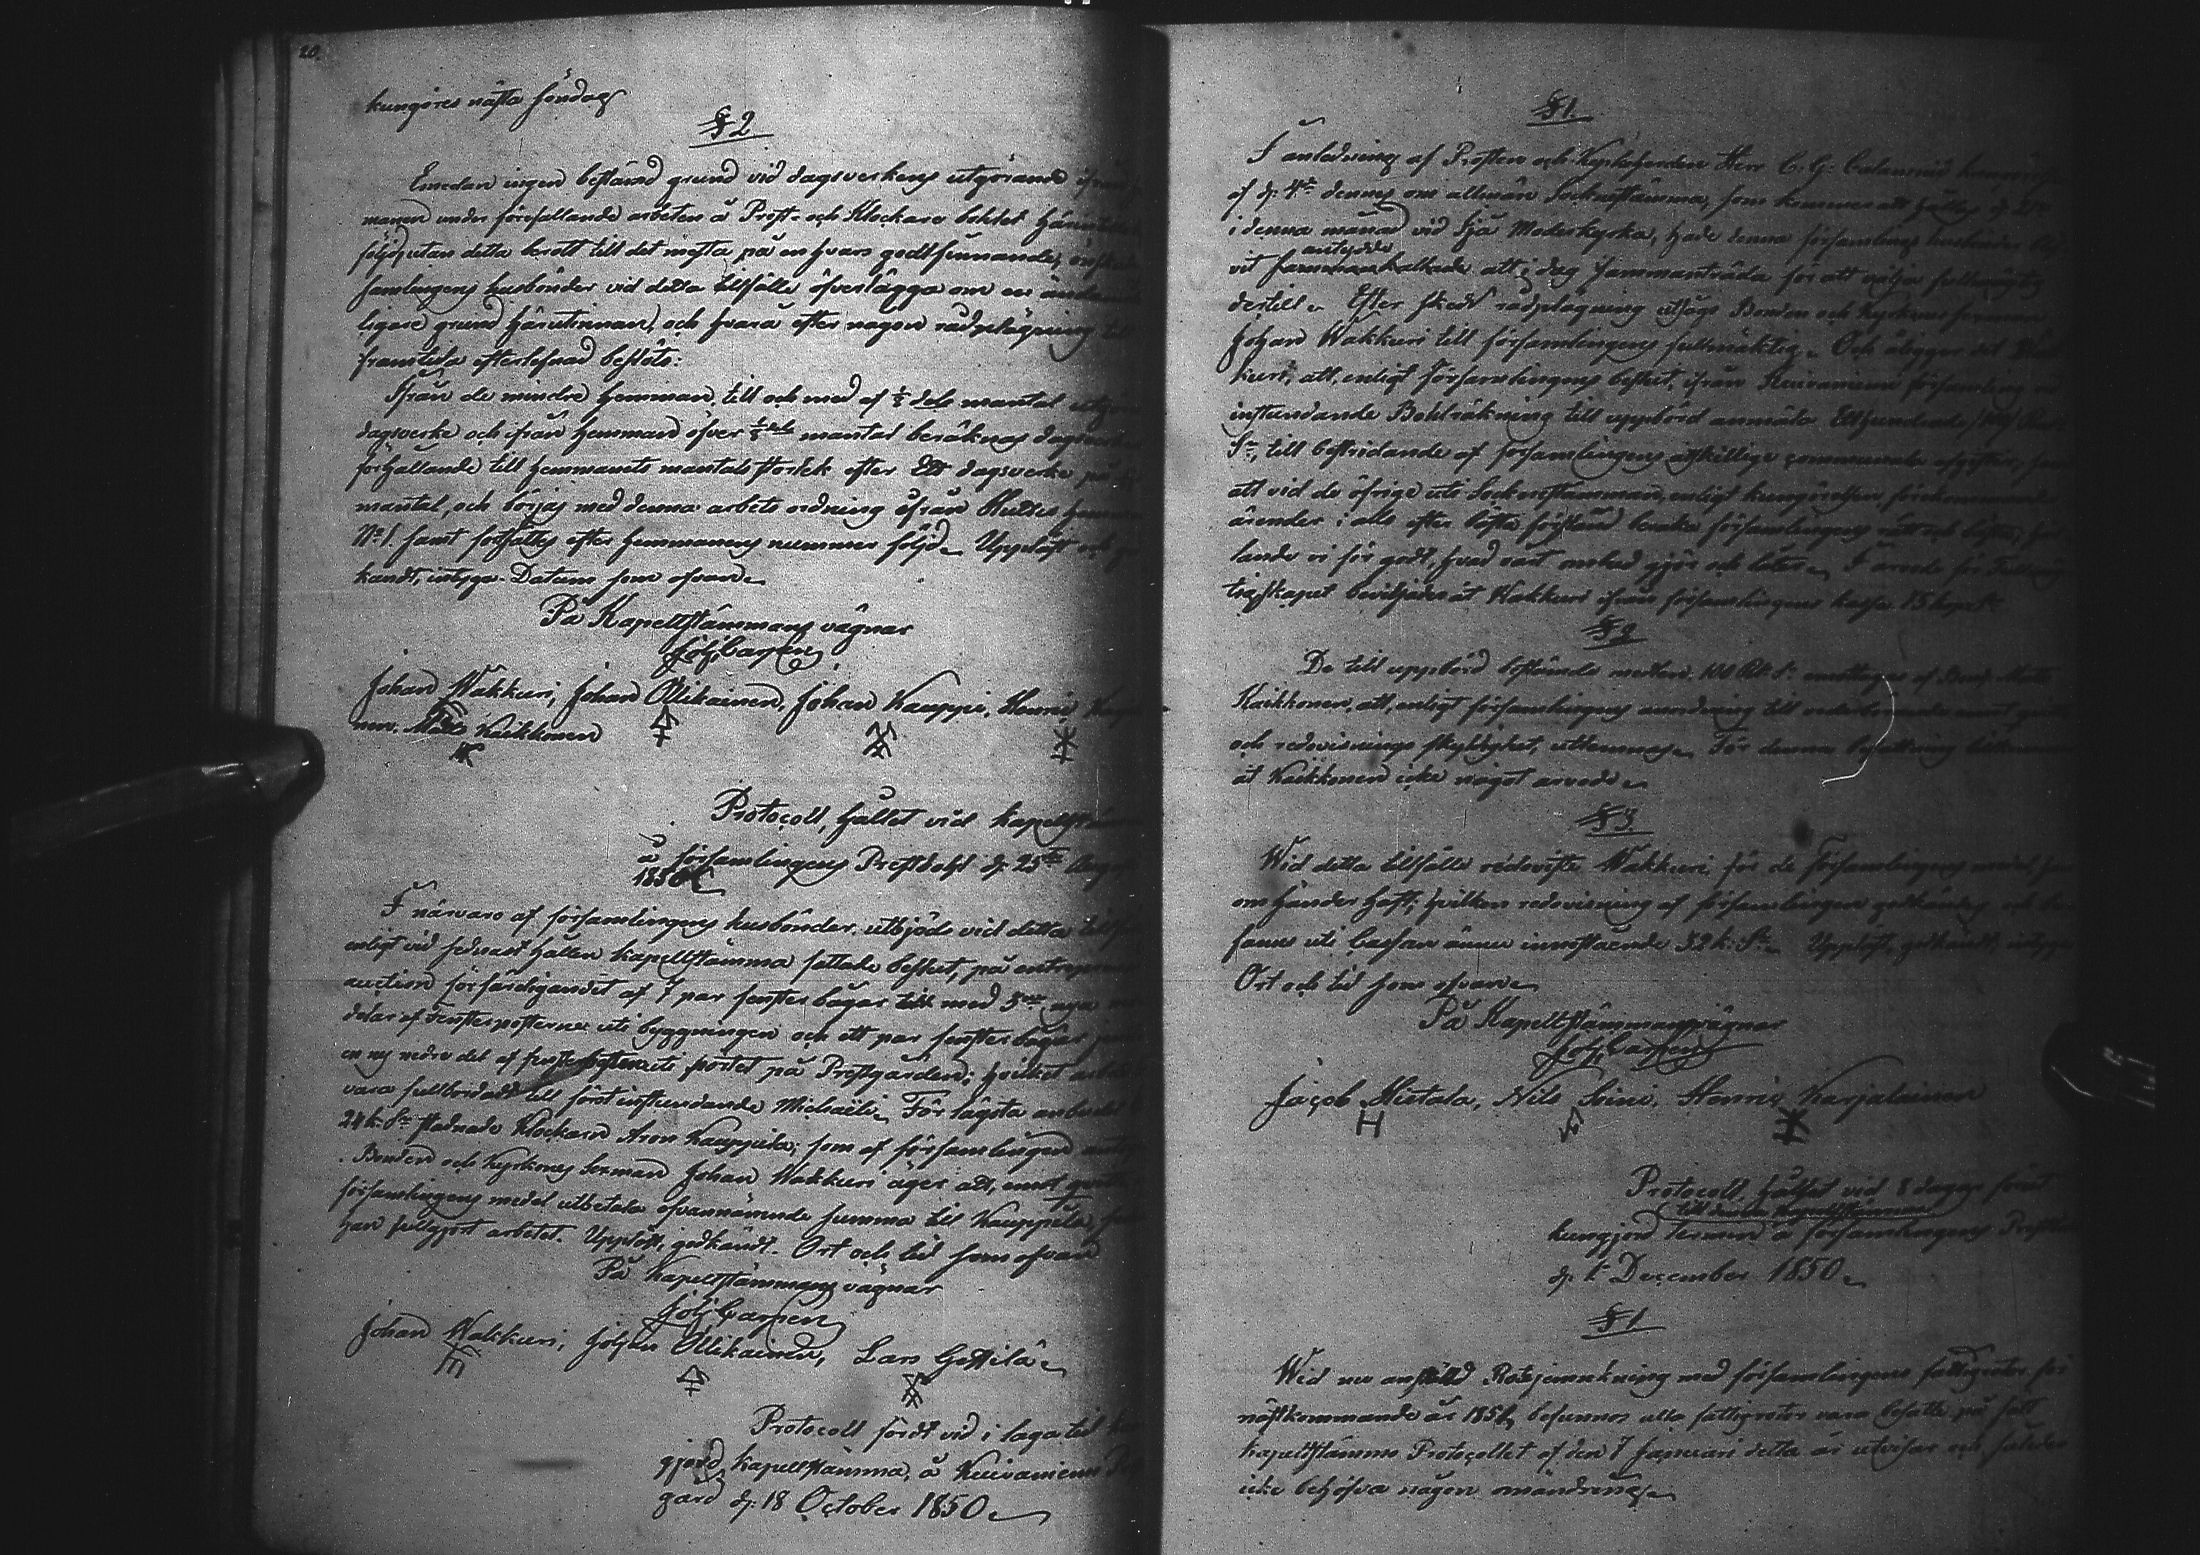 20.
kungöres nästa söndag
§ 2
Emedan ingen bestämd grund vid dagsverkens utgörande ifrån
manen under förefallande arbeten å Prest- och Klockare bohlet härintills
följd, utan detta berott till det mesta på en hvars godtfinnande,
samlingens husbönder vid detta tillfälle öfverlägga om en
ligare grund härutinnan, och hvarå efter någon rådplägning till
framtida efterlefnad beslöts:
Ifrån de mindre hemman, till och med af dels mantal
dagsverke och ifrån hemman öfver dels mantal beräknas
förhållande till hemmanets mantals storlek efter Ett dagsverke på
mantal, och börjas med denna arbets ordning ifrån
No 1. samt fortsättes efter hemmanens nummer följd. Uppläst och
kändt, intyga. Datum som ofvan
På Kapellstämmans vägnar
Joh. Castrén
Johan Wakkuri, Johan Ollikainen, Johan Kauppi, Henric
nen. Matts Kaikkonen
Protocoll, hållet vid Kapellst
å församlingens Prestbohl d. 25te Aug
1850
I närvaro af församlingens husbönder, utbjöds vid detta
enligt vid sednast hållen kapellstämma fattade beslut, på entreprenad
auction förfärdigandet af 7 par fenster bågar
delar af fensterposterne uti byggningen och ett par fenster bågar
en ny nedre del af fensterposten uti pörtet på Prestgården; hvilket arbete
vara fullbordadt till först instundande Michaëli. För lägsta anbudet
24 k. Sr stadnade Klockaren Aron Kauppila; som af församlingen
Bonden och Kyrkones Sexman Johan Wakkuri äger att, emot
församlingens medel utbetala ofvannämnde summa till Kauppila,
han fullgjort arbetet. Uppläst, godkändt. Ort och tid som ofvan
På Kapellstämmans vägnar
Joh. Castrén
Johan Wakkuri, Johan Ollikainen, Lars
Protocoll fördt vid i laga tid
gjord kapellstämma, å Kuivaniemi
gård d. 18 October 1850
§ 1.
I anledning af Prosten och Kyrkoherden Herr C. G. Calamnii
af d. 4de dennes om allmän Sockenstämma, som kommer att hållas d.
i denna månad vid Ijå Moderkyrka, hade denna församlings husbönder
antydde
vit sammankallade att i dag sammanträda för att välja fullmägtig
dertill. Efter skedd rådplägning utsågs Bonden och Kyrkones sexman
Johan Wakkuri till församlingens fullmäktig. Och åligger det
kuri, att, enligt församlingens beslut, ifrån Kuivaniemi församling
instundande Bohlräkning till uppbörd anmäla Etthundrade /100/
Sr, till bestridande af församlingens åtskillige communala utgifter,
att vid de öfrige uti Sockenstämman, enligt kungörelsen, förekommande
ärender i alt efter bästa förstånd bevaka församlingens
lande vi för godt, hvad vårt ombud gjör och låter. I arvode för Fullmäg
tigskapet beviljades åt Wakkuri ifrån församlingens kassa 75 kop. Sr
§ 2
De till uppbörd bestämda medlen 100 Rbl. Sr emottages af Bond. Matts
Kaikkonen, att, enligt församlingens anordning till vederbörande emot
och redovisnings skyldighet, utlemnas. För denna befattning
åt Kaikkonen icke något arvode
§ 3.
Wid detta tillfälle redoviste Wakkuri för de Församlingens medel
om händer haft; hvilken redovisning af församlingen godkändes och
fanns uti Cassan ännu innestående 52 k. Sr. Uppläst, godkändt, intyga
Ort och tid som ofvan
På Kapellstämmans vägnar
Joh. Castrén
Jacob Hietala, Nils, Henric Karjalainen
Protocoll, hållet vid 8 dagar förut
till denna kapellstämma
kungjord termin å församlingens
d. 1. December 1850
§ 1
Wid nu anställd Rotejämnkning med församlingens fattigroter för
nästkommande år 1851, befunnos alla fattigroter vara besatta på sätt
kapellstämmo Protocollet af den 7 Januari detta år utvisar och således
icke behöfva någon omändring